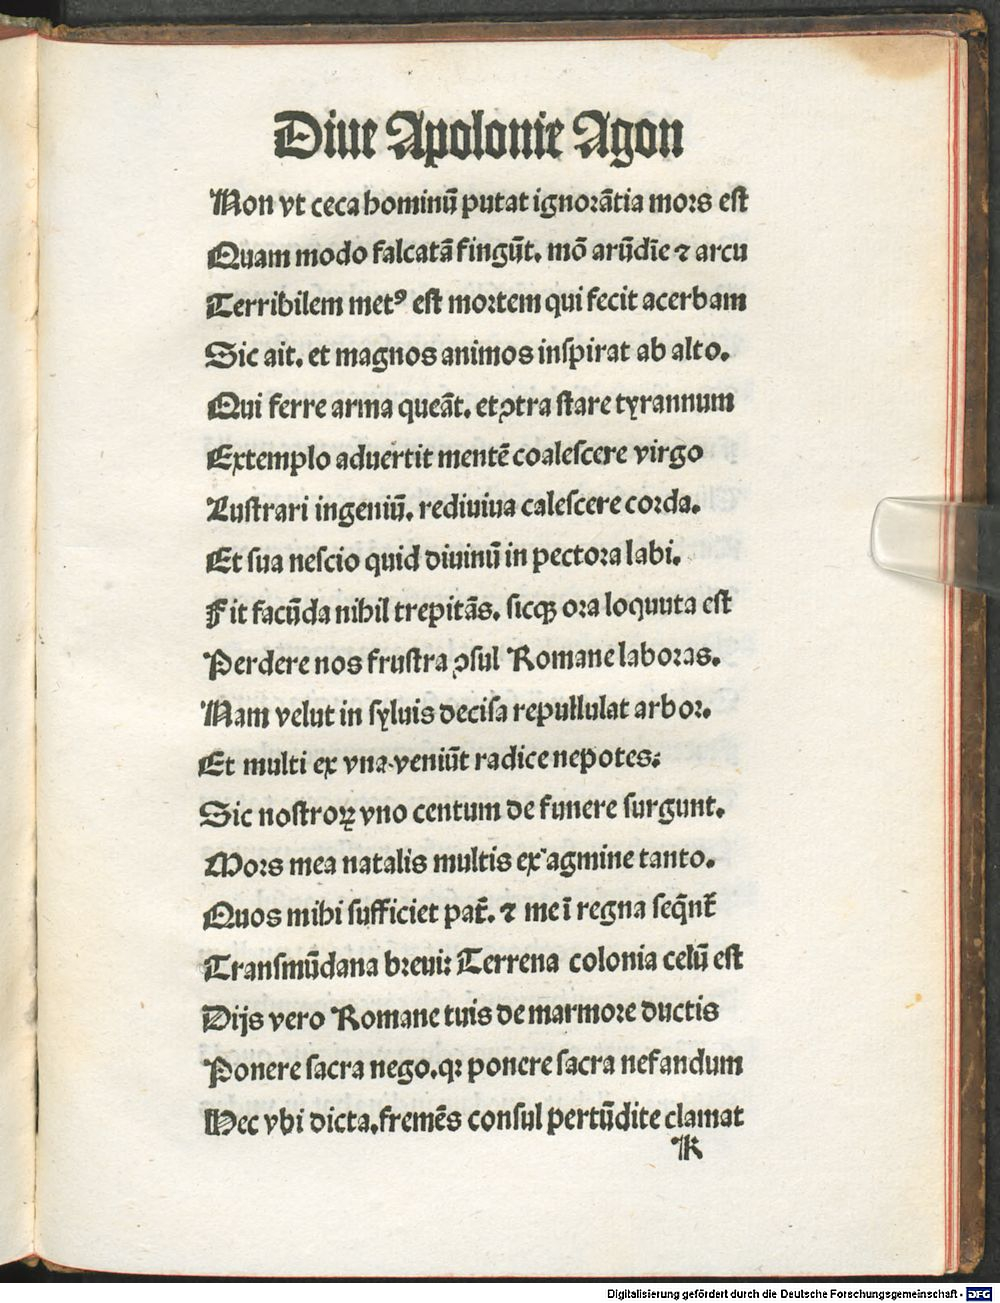 Diue Apolonie Agon
Non vt ceca hominū putat ignorātia mors est
Quam modo falcatā fingūt. mō arūdīe ⁊ arcu
Terribilem metꝰ est mortem qui fecit acerbam
Sic ait. et magnos animos inspirat ab alto.
Qui ferre arma queāt. et ↄtra stare tyrannum
Extemplo aduertit mentē coalescere virgo
Lustrari ingeniū. rediuiua calescere corda.
Et sua nescio quid diuinū in pectora labi.
Fit facūda nihil trepitās. sicqꝫ ora loquuta est
Perdere nos frustra ↄsul Romane laboras.
Nam velut in syluis decisa repullulat arbor.
Et multi ex vna veniūt radice nepotes:
Sic nostroꝝ vno centum de funere surgunt.
Mors mea natalis multis ex agmine tanto.
Quos mihi sufficiet pat̄. ⁊ me ī regna seq̄nt᷑
Transmūdana breui: Terrena colonia celū est
Dijs vero Romane tuis de marmore ductis
Ponere sacra nego. qꝛ ponere sacra nefandum
Hec vbi dicta. fremēs consul pertūdite clamat
K
Digitalisierung gefördert durch die Deutsche Forschungsgemeinschaft - DFG